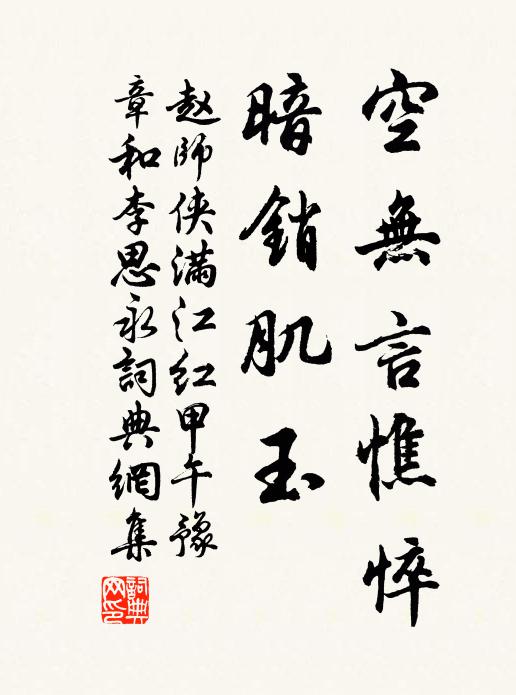 空無言憔悴
暗銷肌玉
赵師侠滿江紅甲午豫
章和李思永詞典網集
詞典网印